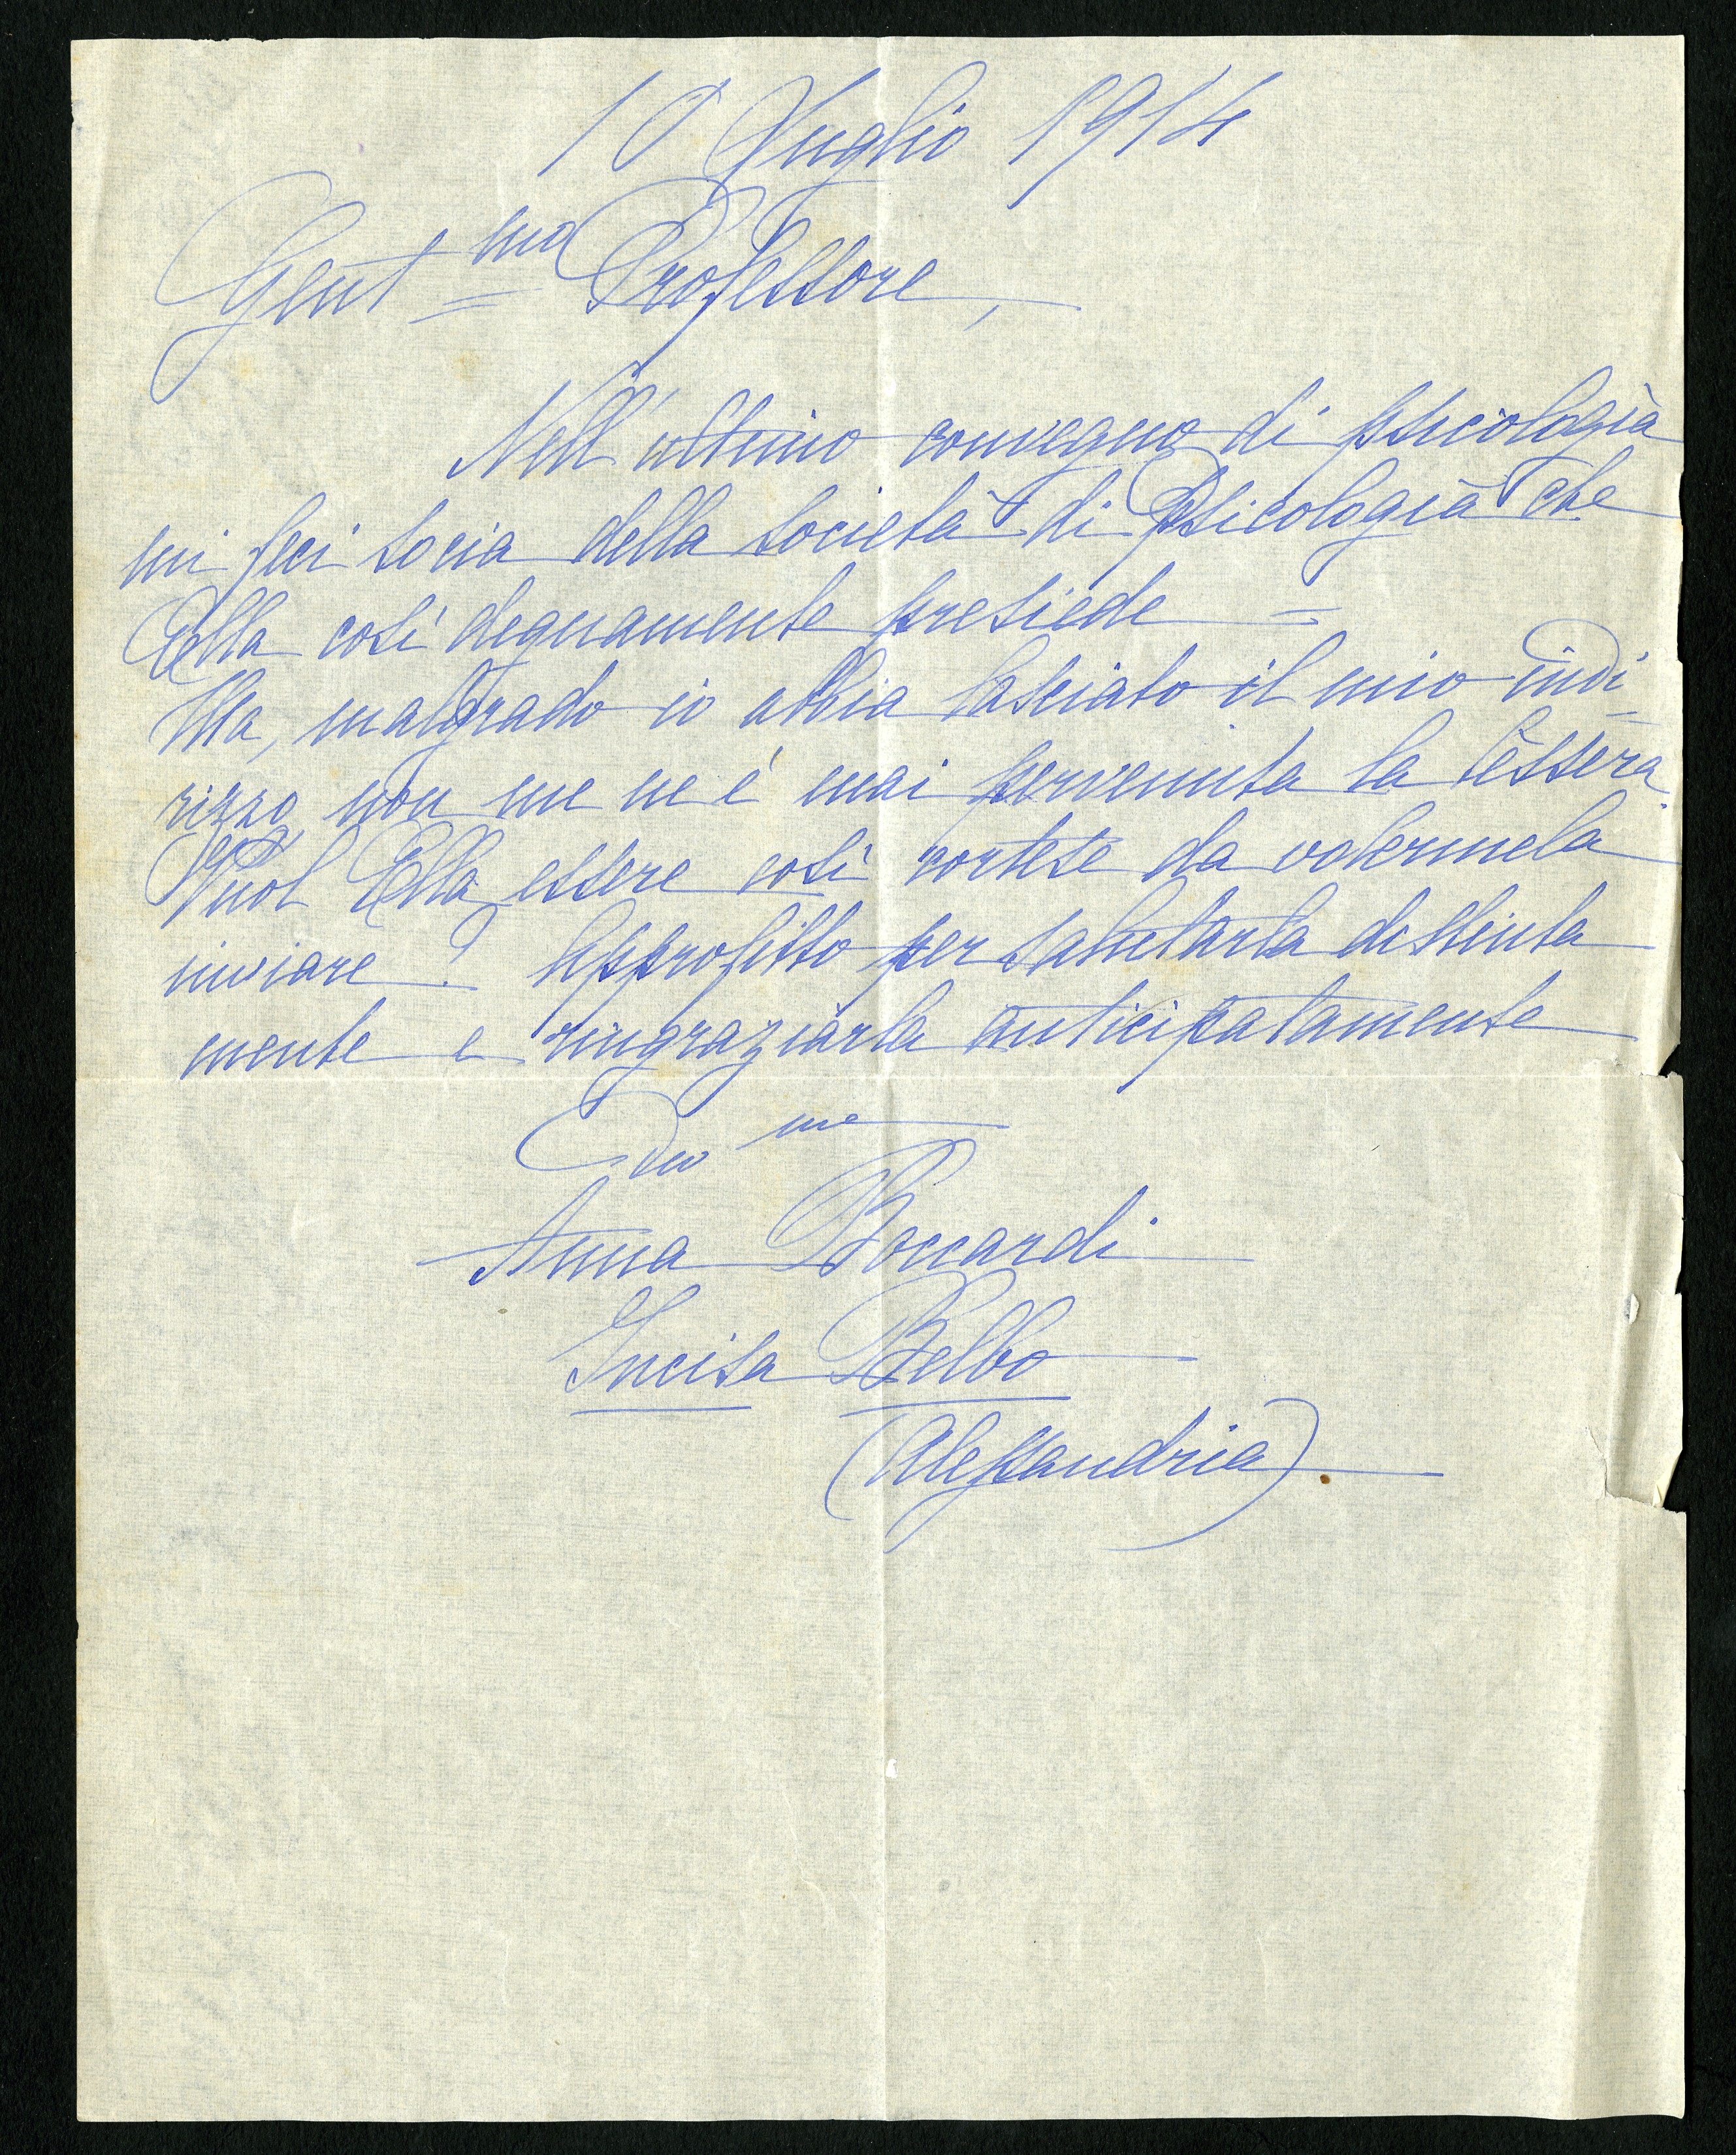 10 Luglio 1914
Gent mo Professore,
Nell'ultimo convegno di psicologia
mi feci socia della società di Psicologia che
Ella così degnamente presiede =
Ma, malgrado io abbia lasciato il mio indi=
rizzo non me ne è mai pervenuta la tèssera.
Vuol Ella essere così cortese da volermela
inviare? Approfitto per salutarla distinta
mente e ringraziarla anticipatamente
Dev ma
Anna Boccardi
Incisa Belbo
(Alessandria).